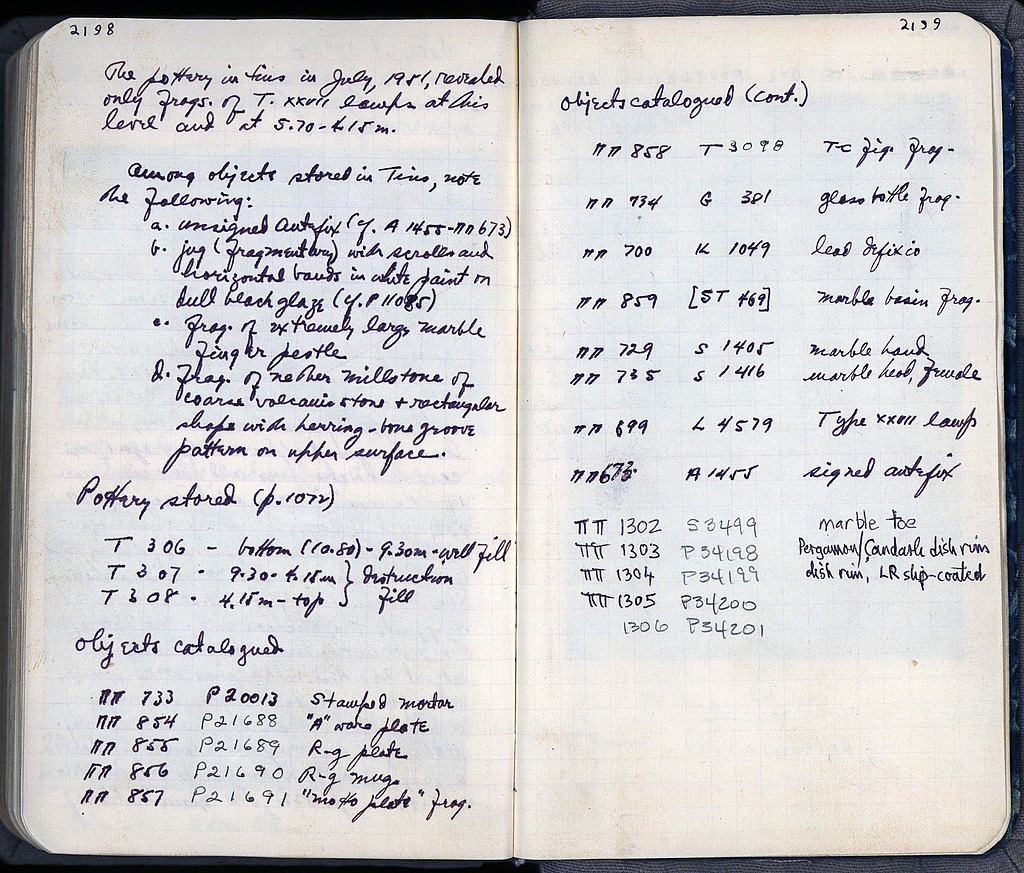 2198
The pottery in tins in July, 1951, revealed
only frags. of T. XXVII lamps at this
level and at 5.70-4.15 m.
Among objects stored in Tins, note
the following:
a. unsigned antefix (cf. A 1455-ΠΠ673)
b. jug (fragmentary) with scrolls and
horizontal bands in white paint on
dull black glaze (cf. P 11085)
c. frag. of extremely large marble
finger pestle
d. frag. of nether millstone of
coarse volcanic stone + rectangular
shape with herring-bone groove
pattern on upper surface.
Pottery stored (p. 1072)
T 306 - bottom (10.80) - 9.30m - well fill
T 307 - 9.30-4.15m } destruction
T 308 - 4.15m - top } fill
Objects catalogued
ΠΠ 733 P 20013 Stamped mortar
ΠΠ 854 P21688 "A" ware plate
ΠΠ 855 P21689 R-g plate
ΠΠ 856 P21690 R-g mug
ΠΠ 857 P21691 "motto plate" frag.
2199
Objects catalogued (cont.)
ΠΠ 858 T 3098 T-C fig. frag.
ΠΠ 734 G 381 glass bottle frag.
ΠΠ 700 IL 1049 lead defixio
ΠΠ 859 [ST 469] marble basin frag.
ΠΠ 729 S 1405 marble hand
ΠΠ 735 S 1416 marble head, female
ΠΠ 699 L 4579 Type XXVII lamp
ΠΠ673 A 1455 signed antefix
ΠΠ 1302 S3499 marble toe
ΠΠ 1303 P34198 Pergamon/Çandarlı dish rim
ΠΠ 1304 P34199 dish rim, LR slip-coated
ΠΠ 1305 P34200
1306 P34201